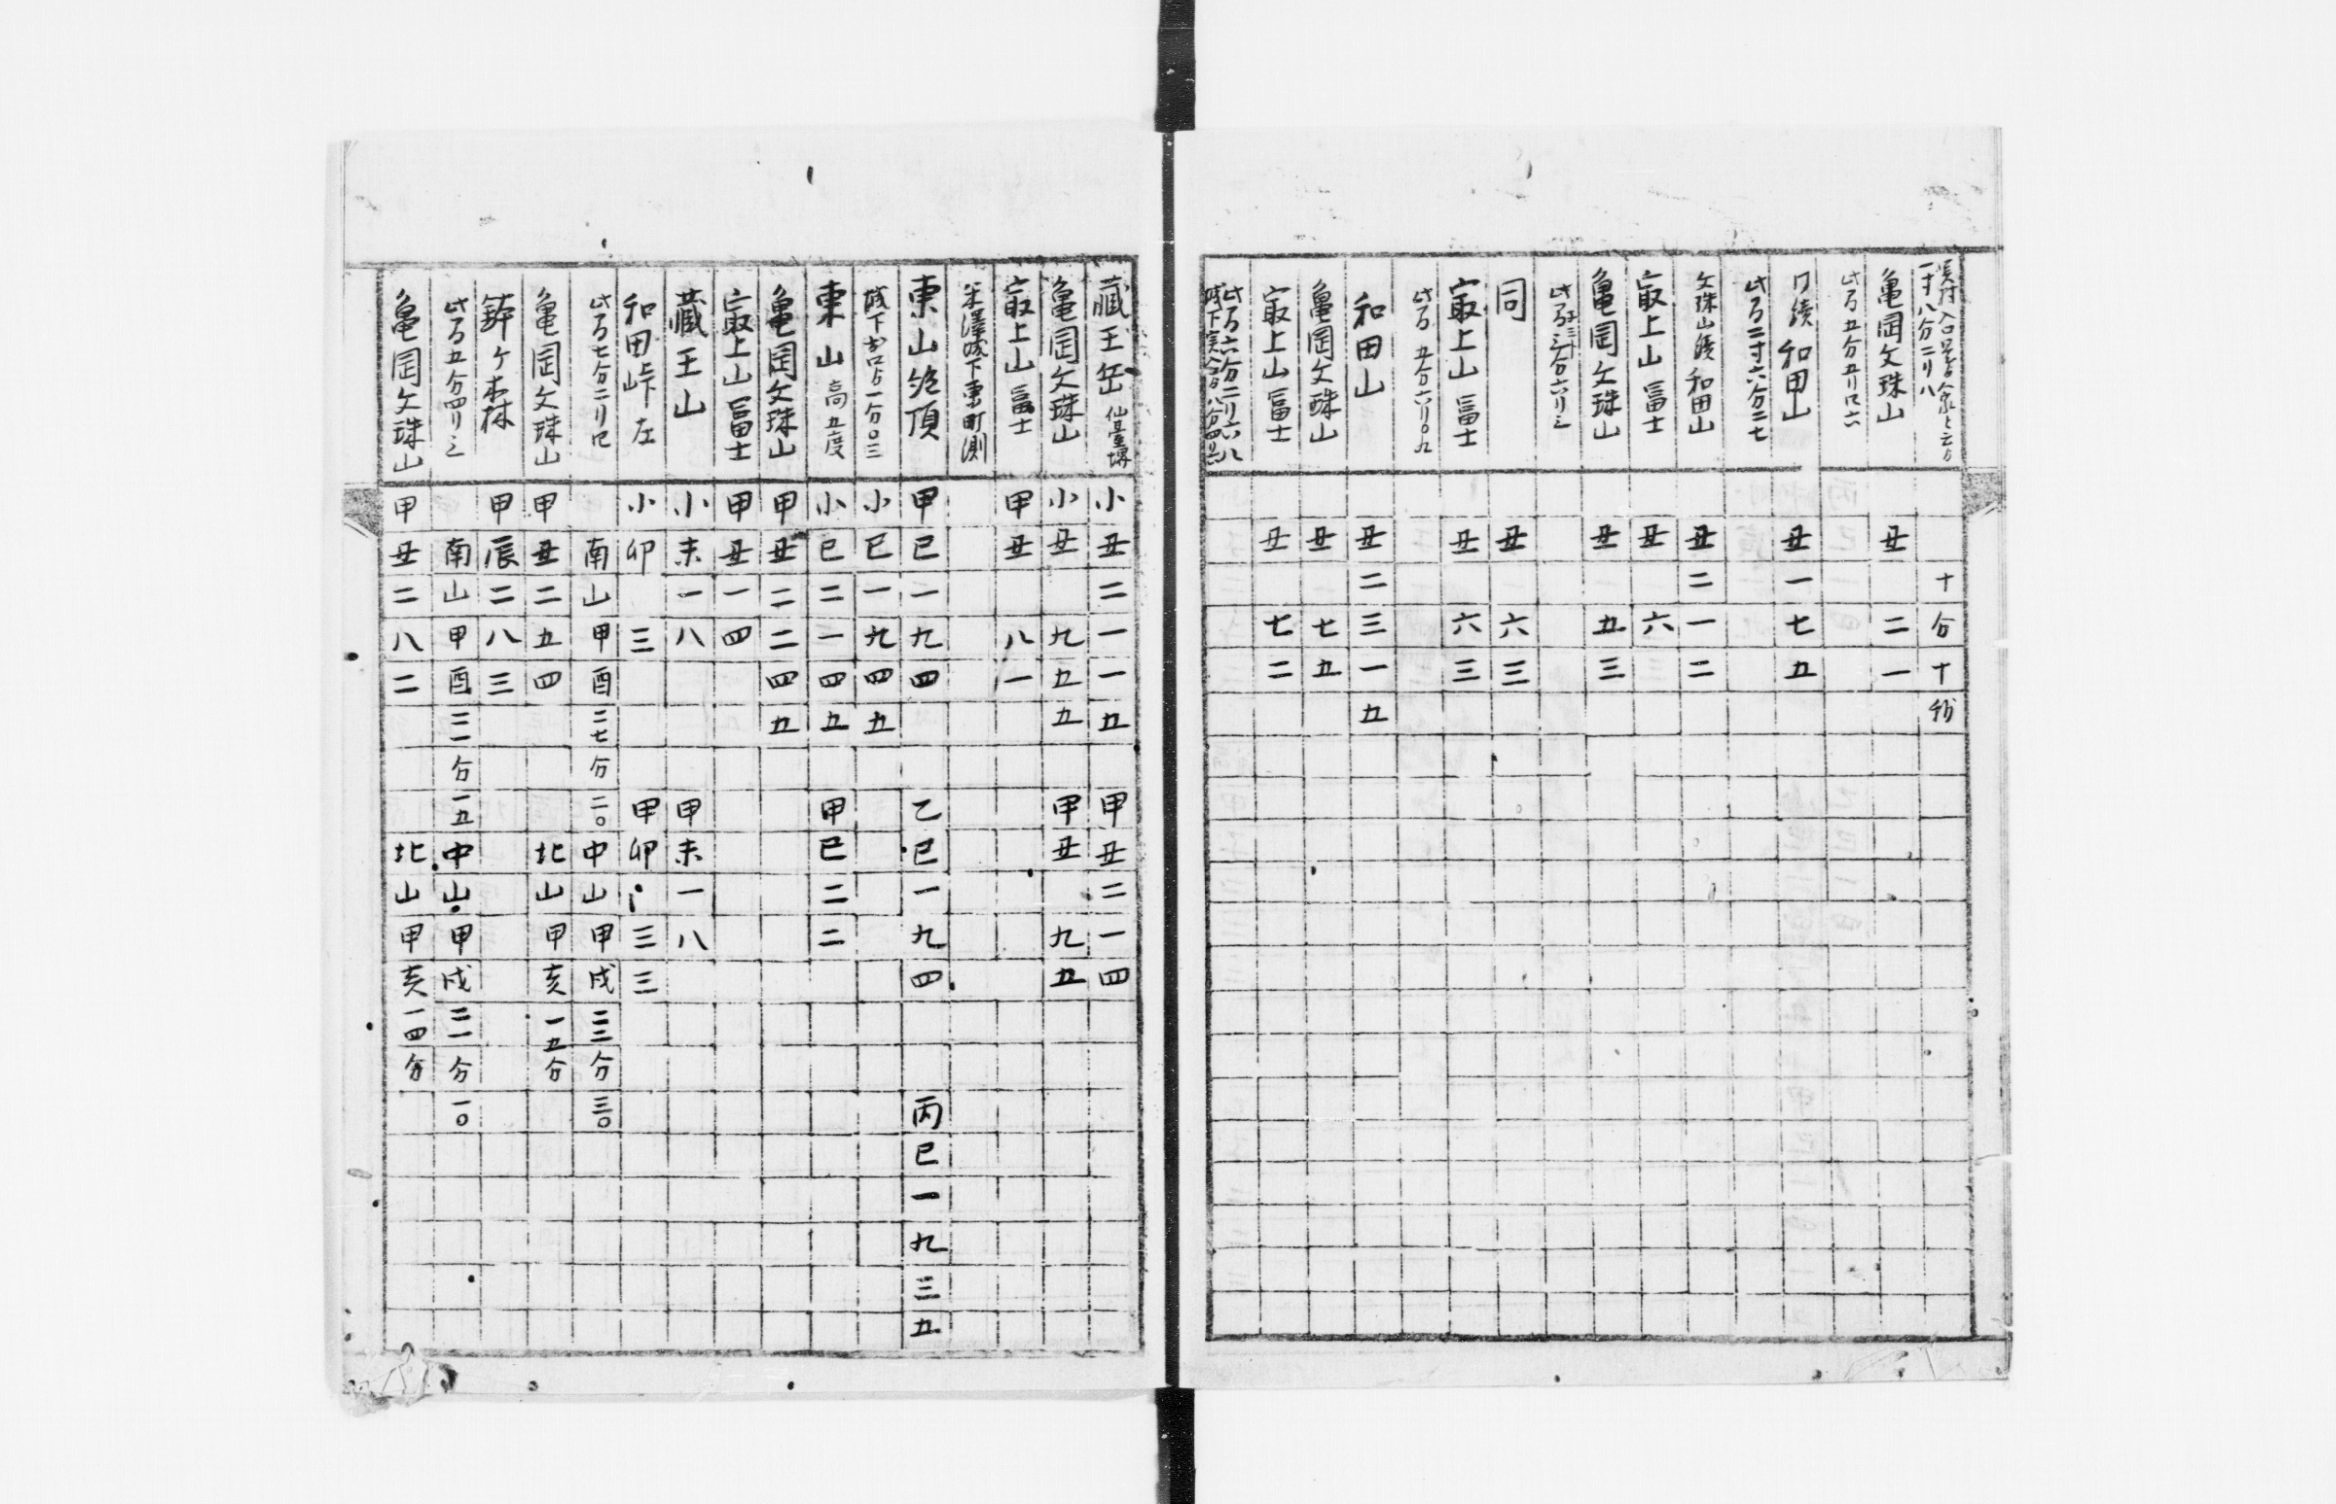 一寸八分二リ八
十 分 十 秒
亀岡文珠山 丑 二 一
此方五分五リ口六
口續和田山 丑 一 七 五
此方二寸六分二七
文珠山續和田山 丑 二 一 二
㝡上山冨士 丑 六
亀岡文珠山 丑 五 三
同 丑 六 三
㝡上山冨士 丑 六 三
此方五分六リ〇九
和田山 丑 二 三 一 五
亀岡文珠山 丑 七 五
㝡上山冨士 丑 七 二
此方六分二リ六八
藏王岳 仙臺堺 小 丑 二 一 一 五 甲 丑 二 一 四
亀岡文珠山 小 丑 九 五 五 甲 丑 九 五
㝡上山冨士 甲 丑 八 一
米澤城下東町測
東山絶頂 甲 巳 一 九 四 乙 巳 一 九 四 丙 巳 一 九 三 五
城下出口ゟ一分〇三 小 巳 一 九 四 五
東山 高五度 小 巳 二 一 四 五 甲 巳 二 二
亀岡文珠山 甲 丑 二 二 四 五
㝡上山冨士 甲 丑 一 四
藏王山 小 未 一 八 甲 未 一 八
和田峠左 小 卯 三 甲 卯 三 三
此方七分二リ 南山 甲 酉 二七分 二〇 中山 甲 戌 二三分 三〇
亀岡文珠山 甲 丑 二 五 四 北山 甲 亥 一五分
鉾ケ森 甲 辰 二 八 三
此方五分四リ三 南山 甲 酉 二一分 一五 中山 甲 戌 二一分 一〇
亀岡文珠山 甲 丑 二 八 二 北山 甲 亥 一四分